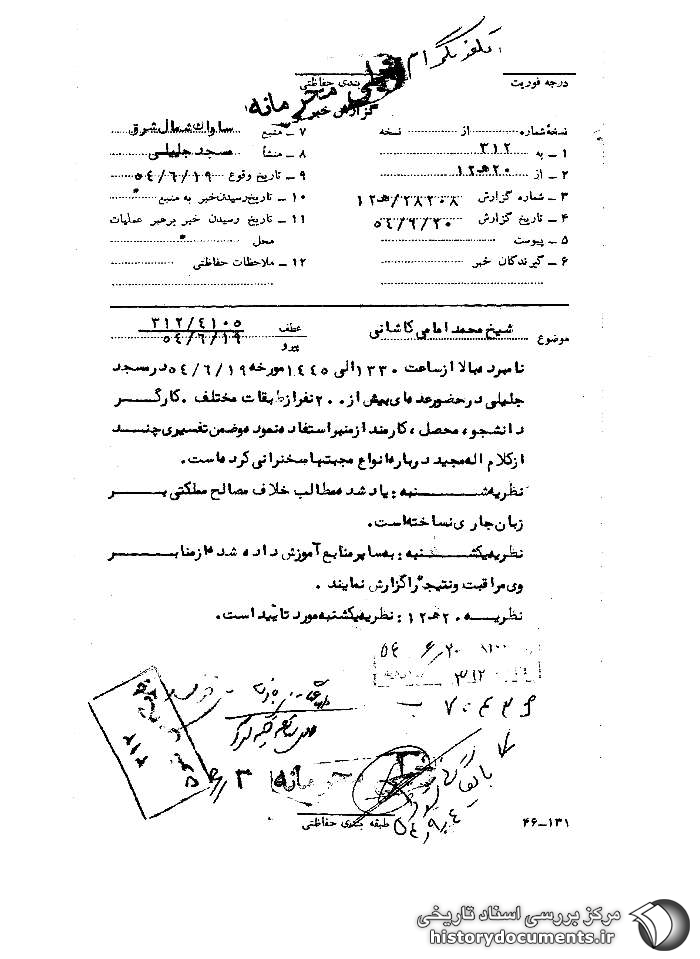 تلفنگرام
درجه فوریت
طبقه بندی حفاظتی
خیلی محرمانه
گزارش خبر
نسخه شماره از نسخه
۱ ـ به ۳۱۲
۲ ـ از ۲۰هـ۱۲
۳ ـ شماره گزارش ۲۸۲۰۸/هـ۱۲
۴ ـ تاریخ گزارش ۵۴/۶/۲۰
۵ ـ پیوست
۶ ـ گیرندگان خبر
۷ ـ منبع ساواک شمال شرق
۸ ـ منشأ مسجد جلیلی
۹ ـ تاریخ وقوع ۵۴/۶/۱۹
۱۰ ـ تاریخ رسیدن خبر به منبع
۱۱ ـ تاریخ رسیدن خبر برهبر عملیات
محل
۱۲ ـ ملاحظات حفاظتی
موضوع شیخ محمد امامی کاشانی
عطف ۳۱۲/۴۱۰۵
پیرو ۵۴/۶/۱۹
نامبرده بالا از ساعت ۱۳۳۰ الی ۱۴۴۵ مورخه ۵۴/۶/۱۹ در مسجد
جلیلی در حضور عده‌ای بیش از ۲۰۰ نفر از طبقات مختلف ، کارگر
دانشجو ، محصل ، کارمند از منبر استفاده نموده و ضمن تفسیری چند
از کلام اله مجید درباره انواع محبتها سخنرانی کرده است.
نظریه شنبه : یاد شده مطالب خلاف مصالح مملکتی بر
زبان جاری نساخته است.
نظریه یکشنبه : به سایر منابع آموزش داده شده از منابر
وی مراقبت و نتیجه را گزارش نمایند .
نظریه ۲۰هـ۱۲ : نظریه یکشنبه مورد تایید است.
۵۴ ۶/۲۰
۳۱۲
۳۱۲
محرمانه
بایگانی شود
۵۴/۹/۴
طبقه بندی حفاظتی
۴۶-۱۳۱
مرکز بررسی اسناد تاریخی
historydocuments.ir